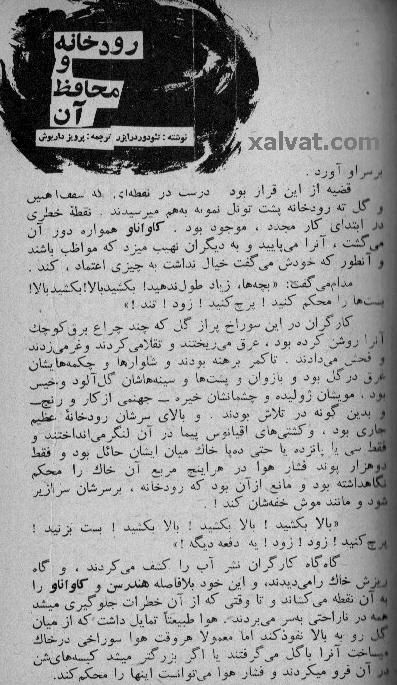 رودخانه
و
محافظ
آن
نوشته : تئودوردرایزر ترجمه : پرویز داریوش
xalvat.com
برسر او آورد .
قضیه از این قرار بود درست در نقطه‌ای که سقف آهنین
و گل ته رودخانه پشت تونل نمونه به‌هم میرسیدند . نقطهٔ خطری
در ابتدای کار مجدد ، موجود بود . کاواناو همواره دور آن
می‌گشت ، آنرا می‌پایید و به دیگران نهیب میزد که مواظب باشند
و آنطور که خودش می‌گفت خیال نداشت به چیزی اعتماد ، کند .
مدام می‌گفت : «بچه‌ها، زیاد طول ندهید! بکشید بالا! بکشید بالا!
بست‌ها را محکم کنید ! پرچ کنید ! زود ! تند !»
کارگران در این سوراخ پر از گل که چند چراغ برق کوچك
آنرا روشن کرده بود ، عرق می‌ریختند و تقلا می‌کردند و غر می‌زدند
و فحش می‌دادند . تا کمر برهنه بودند و شلوارها و چکمه‌هایشان
غرق در گل بود و بازوان و پشت‌ها و سینه‌هاشان گل‌آلود و خیس
بود ، مویشان ژولیده و چشمانشان خیره ــ جهنمی از کار و رنج ــ
و بدین گونه در تلاش بودند . و بالای سرشان رودخانهٔ عظیم
جاری بود ، و کشتی‌های اقیانوس پیما در آن لنگر می‌انداختند و
فقط سی یا پانزده یا حتی ده پا خاك میان ایشان حائل بود و فقط
دوهزار پوند فشار هوا در هر اینچ مربع آن خاك را محکم
نگاهداشته بود و مانع از آن بود که رودخانه ، برسرشان سرازیر
شود و مانند موش خفه‌شان کند ! .
«بالا بکشید ! بالا بکشید ! بالا بکشید ! بست بزنید !
پرچ کنید ! زود ! زود ! یه دفعه دیگه !»
گاه‌گاه کارگران نشر آب را کشف می‌کردند ، و گاه
ریزش خاك را می‌دیدند، و این خود بلافاصله هندرسن و کاواناو را
به آن نقطه می‌کشاند و تا وقتی که از آن خطرات جلوگیری میشد
همه در ناراحتی به‌سر می‌بردند . هوا طبیعتاً تمایل داشت که از میان
گل رو به بالا نفوذ کند اما معمولا هروقت هوا سوراخی در خاك
میساخت آنرا با گل می‌گرفتند یا اگر بزرگتر میشد کیسه‌های شن
در آن فرو میکردند و فشار هوا می‌توانست اینها را محکم کند.